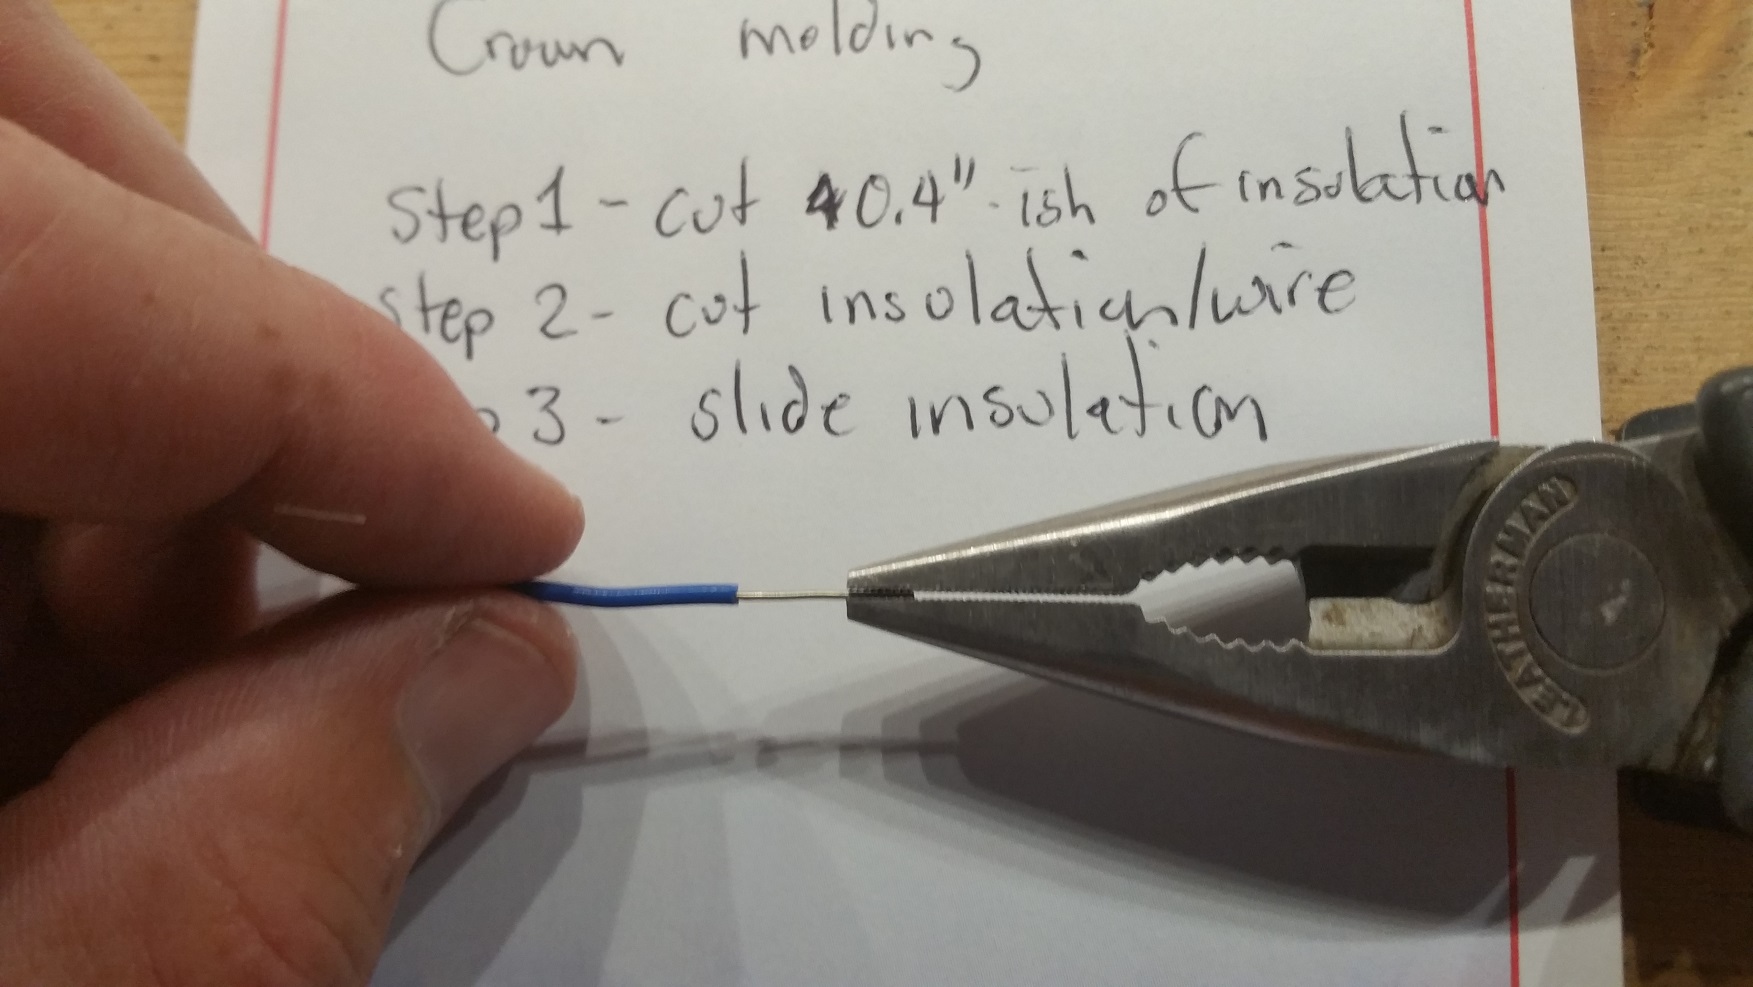 Crown molding
Step 1 - cut 0.4"-ish of insulation
Step 2 - cut insolation/wire
3 - slide insulation
LEATHERMAN